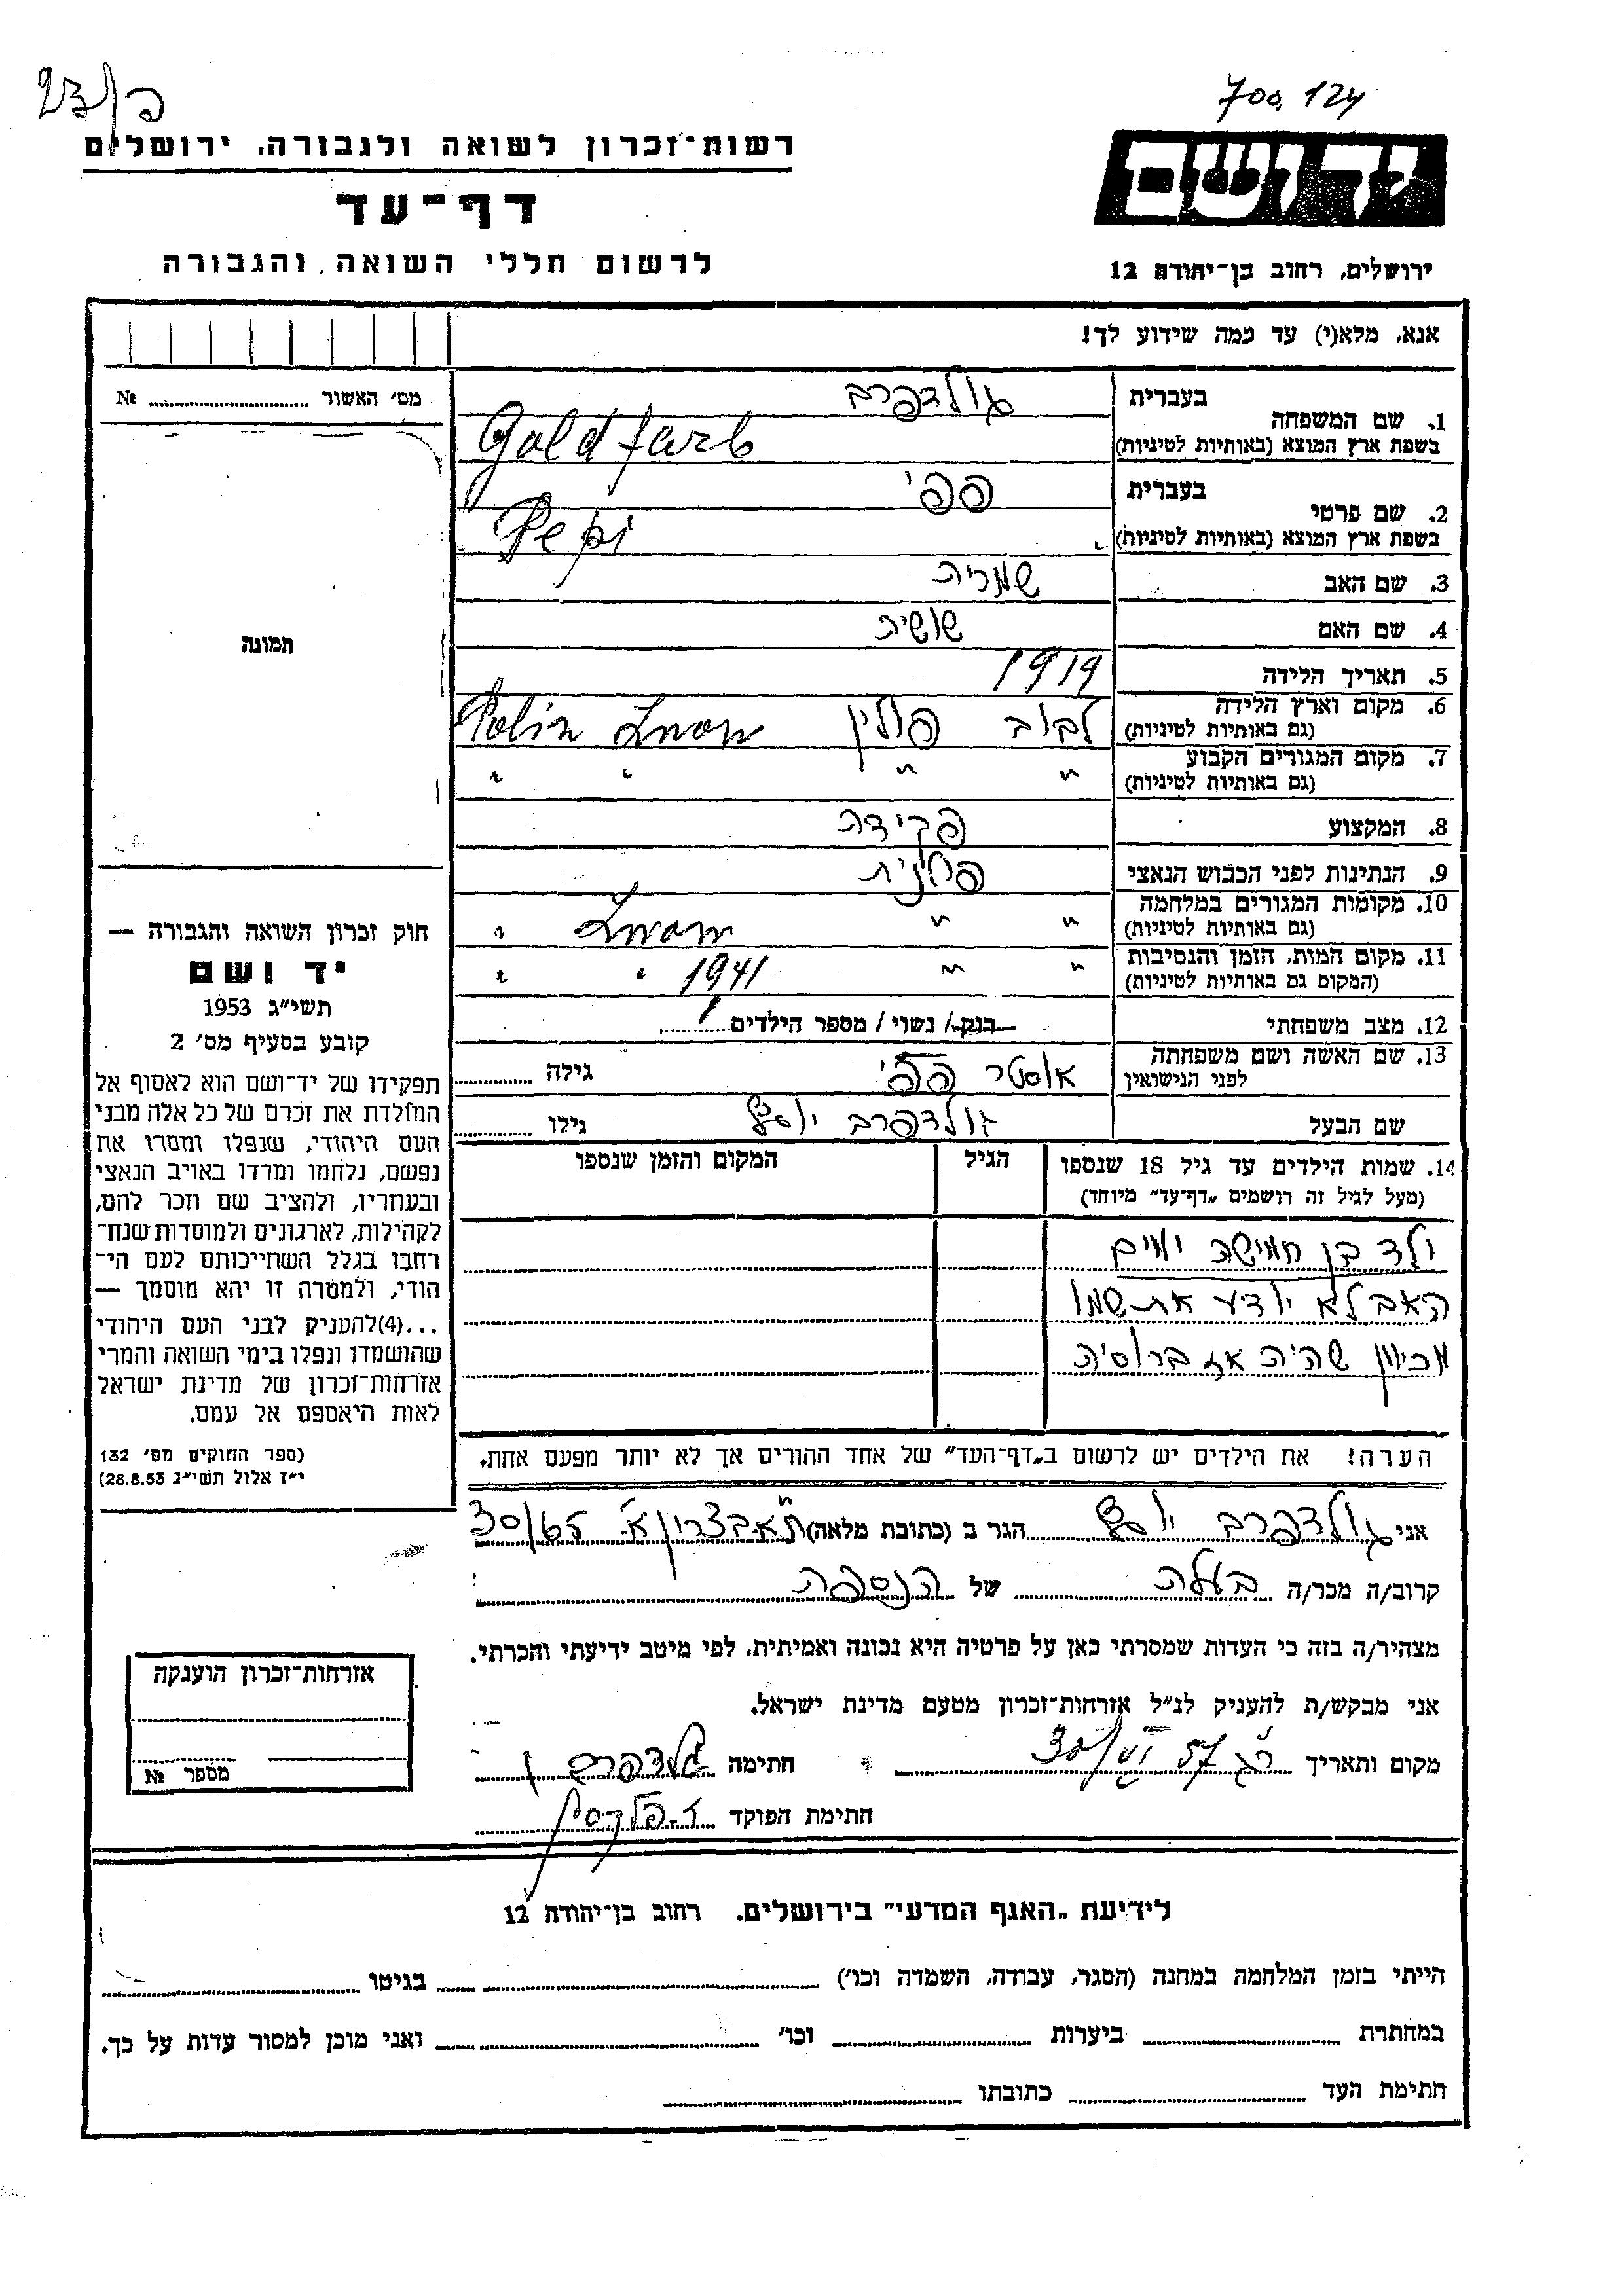 700,124
רשות-זכרון לשואה ולגבורה, ירושלים
יד ושם
דף-עד
לרשום חללי השואה והגבורה
ירושלים, רחוב בן-יהודה 12
אנא, מלא(י) עד כמה שידוע לך!
מס׳ האשור №
1. שם המשפחה
בעברית גולדפרב
בשפת ארץ המוצא (באותיות לטיניות) Goldfarb
2. שם פרטי
בעברית פפי
בשפת ארץ המוצא (באותיות לטיניות) Pepi
3. שם האב שמריה
4. שם האם
5. תאריך הלידה 1919
6. מקום וארץ הלידה לבוב פולין Polin Lwow
(גם באותיות לטיניות)
7. מקום המגורים הקבוע " " " "
(גם באותיות לטיניות)
8. המקצוע פקידה
9. הנתינות לפני הכבוש הנאצי פולנית
10. מקומות המגורים במלחמה " " Lwow "
(גם באותיות לטיניות)
11. מקום המות, הזמן והנסיבות " " 1941 " "
(המקום גם באותיות לטיניות)
12. מצב משפחתי רוק / נשוי / מספר הילדים 1
13. שם האשה ושם משפחתה אוסטר פפי גילה
לפני הנישואין
שם הבעל גולדפרב יוסף גילו
14. שמות הילדים עד גיל 18 שנספו הגיל המקום והזמן שנספו
(מעל לגיל זה רושמים „דף-עד״ מיוחד)
ולד בן חמישה ימים
האב לא יודע את שמו
מכיוון שהיה אז ברוסיה
הערה! את הילדים יש לרשום ב„דף-העד״ של אחד ההורים אך לא יותר מפעם אחת.
תמונה
חוק זכרון השואה והגבורה —
יד ושם
תשי״ג 1953
קובע בסעיף מס׳ 2
תפקידו של יד-ושם הוא לאסוף אל
המולדת את זכרם של כל אלה מבני
העם היהודי, שנפלו ומסרו את
נפשם, נלחמו ומרדו באויב הנאצי
ובעוזריו, ולהציב שם וזכר להם,
לקהילות, לארגונים ולמוסדות שנח-
רבו בגלל השתייכותם לעם הי-
הודי, ולמטרה זו יהא מוסמך —
...(4)להעניק לבני העם היהודי
שהושמדו ונפלו בימי השואה והמרי
אזרחות-זכרון של מדינת ישראל
לאות היאספם אל עמם.
(ספר החוקים מס׳ 132
י״ז אלול תשי״ג 28.8.53)
אני גולדפרב יוסף הגר ב (כתובת מלאה) ת״א. ביצרון א׳ 30/65
קרוב/ה מכר/ה בעלה של הנספה
מצהיר/ה בזה כי העדות שמסרתי כאן על פרטיה היא נכונה ואמיתית, לפי מיטב ידיעתי והכרתי.
אני מבקש/ת להעניק לנ״ל אזרחות-זכרון מטעם מדינת ישראל.
מקום ותאריך 30/VI 57 חתימה גולדפרב י
חתימת הפוקד
אזרחות-זכרון הוענקה
מספר №
לידיעת „האגף המדעי״ בירושלים. רחוב בן-יהודה 12
הייתי בזמן המלחמה במחנה (הסגר, עבודה, השמדה וכו׳) בגיטו
במחתרת ביערות וכו׳ ואני מוכן למסור עדות על כך.
חתימת העד כתובתו